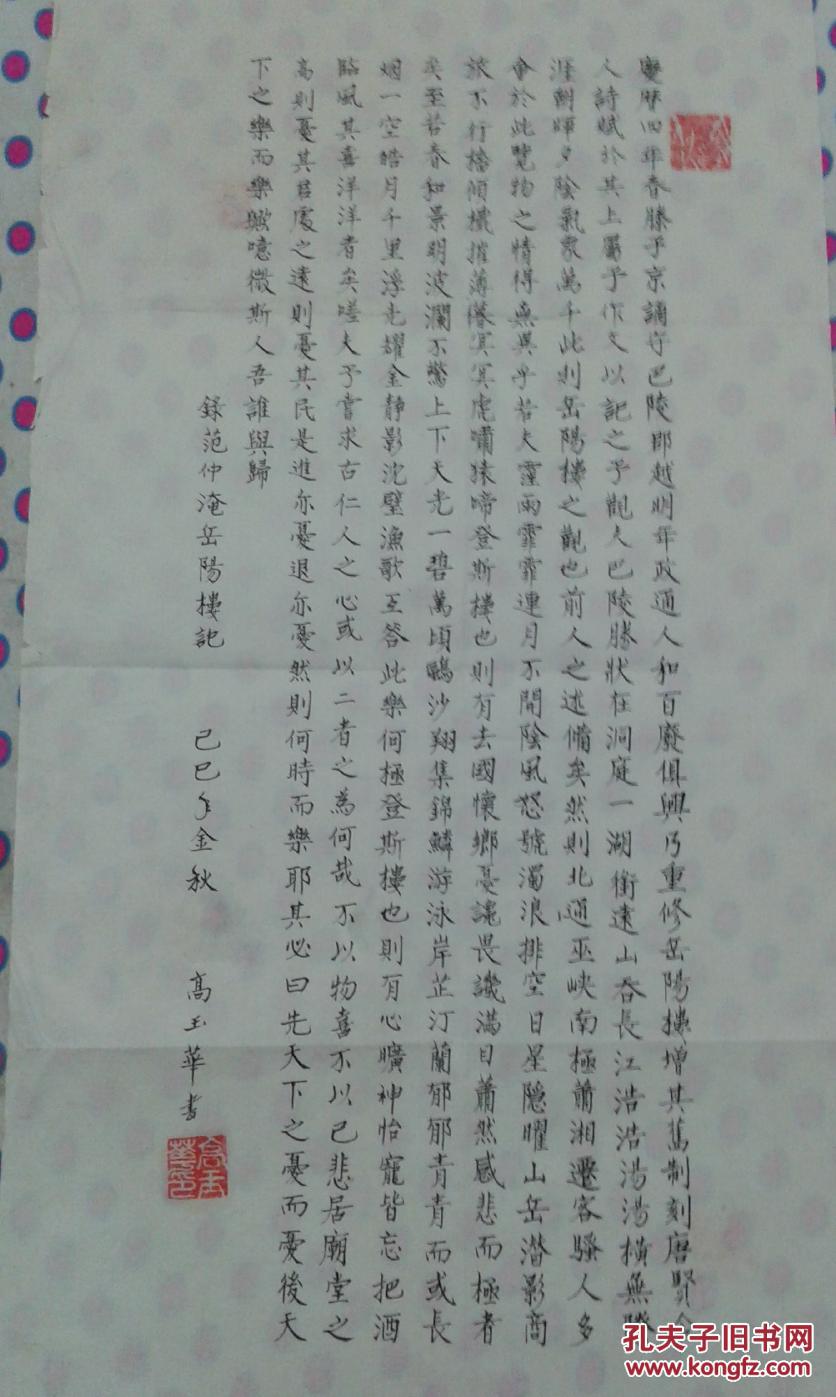 慶曆四年春滕子京謫守巴陵郡越明年政通人和百廢俱興乃重修岳陽樓增其舊制刻唐賢今
人詩賦於其上屬予作文以記之予觀夫巴陵勝狀在洞庭一湖銜遠山吞長江浩浩湯湯橫無際
涯朝暉夕陰氣象萬千此則岳陽樓之觀也前人之述備矣然則北通巫峽南極蕭湘遷客騷人多
會於此覽物之情得無異乎若夫霪雨霏霏連月不開陰風怒號濁浪排空日星隱曜山岳潛影商
旅不行檣傾檝摧薄暮冥冥虎嘯猿啼登斯樓也則有去國懷鄉憂讒畏譏滿目蕭然感悲而極者
矣至若春和景明波瀾不驚上下天光一碧萬頃鷗沙翔集錦鱗游泳岸芷汀蘭郁郁青青而或長
烟一空皓月千里浮光耀金靜影沈璧漁歌互答此樂何極登斯樓也則有心曠神怡寵皆忘把酒
臨風其喜洋洋者矣嗟夫予嘗求古仁人之心或以二者之為何哉不以物喜不以己悲居廟堂之
高則憂其君處之遠則憂其民是進亦憂退亦憂然則何時而樂耶其必曰先天下之憂而憂後天
下之樂而樂歟噫微斯人吾誰與歸
錄范仲淹岳陽樓記 己巳年金秋 高玉華書
高玉華印
孔夫子旧书网
www.kongfz.com